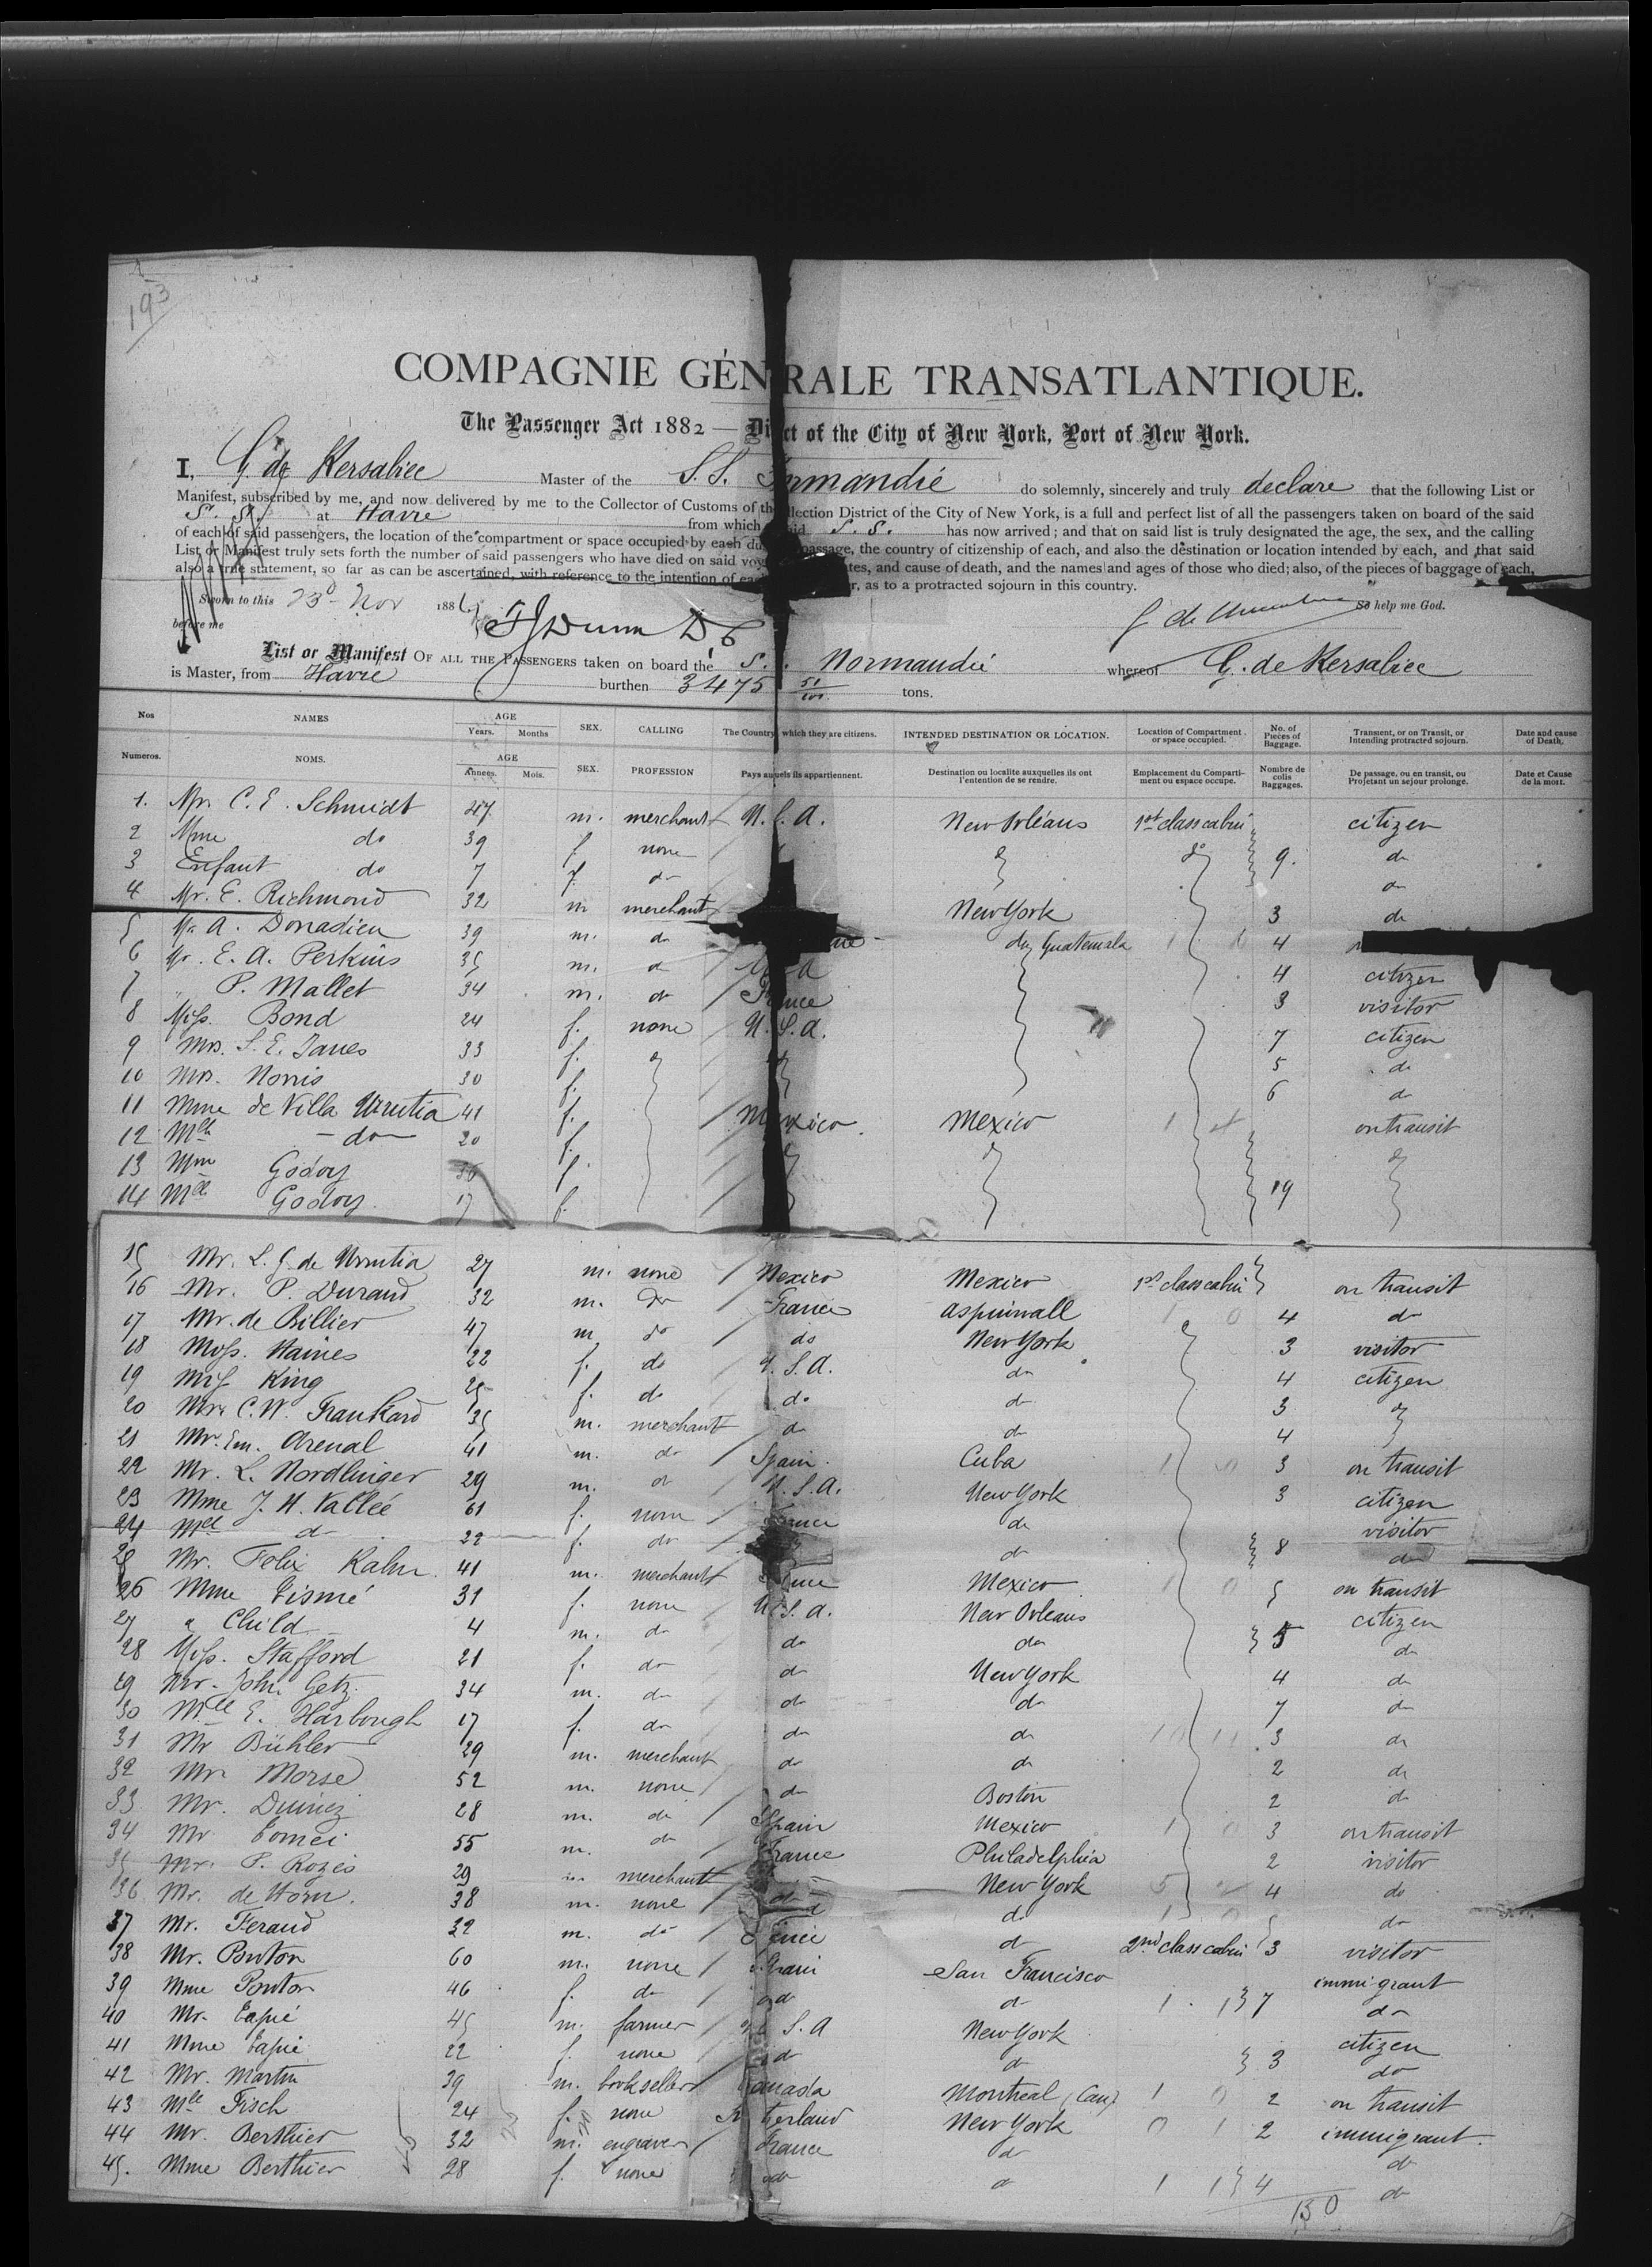 193
COMPAGNIE GÉN RALE TRANSATLANTIQUE.
The Passenger Act 1882 — Di ct of the City of New York, Port of New York.
I, G. de Kersabiec Master of the S.S. rmandie do solemnly, sincerely and truly declare that the following List or
Manifest, subscribed by me, and now delivered by me to the Collector of Customs of th llection District of the City of New York, is a full and perfect list of all the passengers taken on board of the said
S. S. at Havre from which aid S. S. has now arrived; and that on said list is truly designated the age, the sex, and the calling
of each of said passengers, the location of the compartment or space occupied by each du passage, the country of citizenship of each, and also the destination or location intended by each, and that said
List or Manifest truly sets forth the number of said passengers who have died on said voy tes, and cause of death, and the names and ages of those who died; also, of the pieces of baggage of each,
also a true statement, so far as can be ascertained, with reference to the intention of eac r, as to a protracted sojourn in this country.
Sworn to this 23d Nov 1886 So help me God.
before me
List or Manifest OF ALL THE PASSENGERS taken on board the S. Normandie whereof G. de Kersabiec
is Master, from Havre burthen 3475 51/100 tons.
Nos NAMES AGE Years. Months SEX. CALLING The Country which they are citizens. INTENDED DESTINATION OR LOCATION. Location of Compartment or space occupied. No. of Pieces of Baggage. Transient, or on Transit, or Intending protracted sojourn. Date and cause of Death.
Numeros. NOMS. AGE Années. Mois. SEX. PROFESSION Pays auquels ils appartiennent. Destination ou localite auxquelles ils ont l'entention de se rendre. Emplacement du Comparti-ment ou espace occupe. Nombre de colis Baggages. De passage, ou en transit, ou Projetant un sejour prolonge. Date et Cause de la mort.
1. Mr. C. E. Schmidt 47 m. merchant U.S.A. New Orléans 1st class cabin citizen
2 Mme do 39 f. none do 9. do
3 Enfant do 7 f. do do
4 Mr. E. Richmond 32 m merchant New York 3 do
5 Mr. A. Donadieu 39 m. do do, Guatemala 4
6 Mr. E. A. Perkins 35 m. do 4 citizen
7 " P. Mallet 34 m. do France 3 visitor
8 Miss. Bond 24 f. none U.S.A. 7 citizen
9 Mrs. S. E. Janes 33 f. 5 do
10 Mrs. Norris 30 f. 6 do
11 Mme de Villa Urrutia 41 f. Mexico. Mexico on transit
12 Mlle do 20 f.
13 Mme Godoy f.
14 Mlle Godoy. 17 f. 19
15 Mr. L. G. de Urrutia 27 m. none Mexico Mexico 1st class cabin on transit
16 Mr. P. Durand 32 m. do France Aspinwall 4 do
17 Mr. de Billier 47 m do do New York 3 visitor
18 Miss. Haines 22 f. do U.S.A. do 4 citizen
19 Miss King 25 f. do do do 3
20 Mr. C. W. Frankard 35 m. merchant do do 4
21 Mr. Em. Arenal 41 m. do Spain. Cuba 3 on transit
22 Mr. L. Nordlinger 29 m. do U.S.A. New York 3 citizen
23 Mme J. H. Vallée 61 f. none do visitor
24 Mlle do 22 f. do do 8 do
25 Mr. Felix Kahn. 41 m. merchant Mexico 5 on transit
26 Mme 31 f. none U.S.A. New Orleans citizen
27 " Child 4 m. do do do 5 do
28 Miss. Stafford 21 f. do do New York 4 do
29 Mr. John Getz. 34 m. do do do 7 do
30 Mlle E. Harbough 17 f. do do do 3 do
31 Mr Bühler 29 m. merchant do do 2 do
32 Mr. Morse 52 m. none do Boston 2 do
33 Mr. 28 m. do Spain Mexico 3 on transit
34 Mr 55 m. do France Philadelphia 2 visitor
35 Mr. P. Rozés 29 m. merchant New York 4 do
36 Mr. de Horn. 38 m. none do 5 do
37 Mr. Feraud 32 m. do do 2nd class cabin 3 visitor
38 Mr. Ponton 60 m. none San Francisco immigrant
39 Mme Ponton 46 f. do do do 1 1 7 do
40 Mr. Capié 45 m. farmer S. A New York citizen
41 Mme Capié 22 f. none do do 3 do
42 Mr. Martin 39 m. bookseller Canada Montreal (Can) 1 0 2 on transit
43 Mlle Fisch 24 f. none terland New York 0 1 2 immigrant.
44 Mr. Berthier 32 m. engraver France do do
45. Mme Berthier 28 f. none do do 1 1 4 do
130